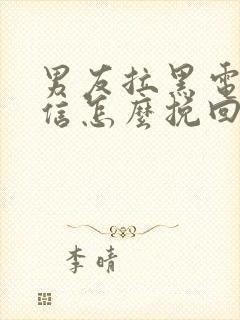 男友拉黑電
信怎麼挽回
李晴